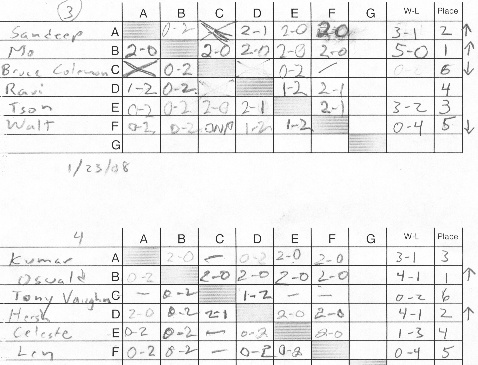 3 A B C D E F G W-L Place
Sandeep A 0-2 2-1 2-0 2-0 3-1 2 ↑
Mo B 2-0 2-0 2-0 2-0 2-0 5-0 1 ↑
Bruce Coleman C 0-2 0-2 — 6 ↓
Ravi D 1-2 0-2 1-2 2-1 4
Tson E 0-2 0-2 2-0 2-1 2-1 3-2 3
Walt F 0-2 0-2 1-2 1-2 0-4 5 ↓
G
1/23/08
4 A B C D E F G W-L Place
Kumar A 2-0 — 0-2 2-0 2-0 3-1 3
Oswald B 0-2 2-0 2-0 2-0 2-0 4-1 1 ↑
Tony Vaughn C — 0-2 1-2 — — 0-2 6
Hersh D 2-0 0-2 2-1 2-0 2-0 4-1 2 ↑
Celeste E 0-2 0-2 — 0-2 2-0 1-3 4
Len F 0-2 0-2 — 0-2 0-2 0-4 5